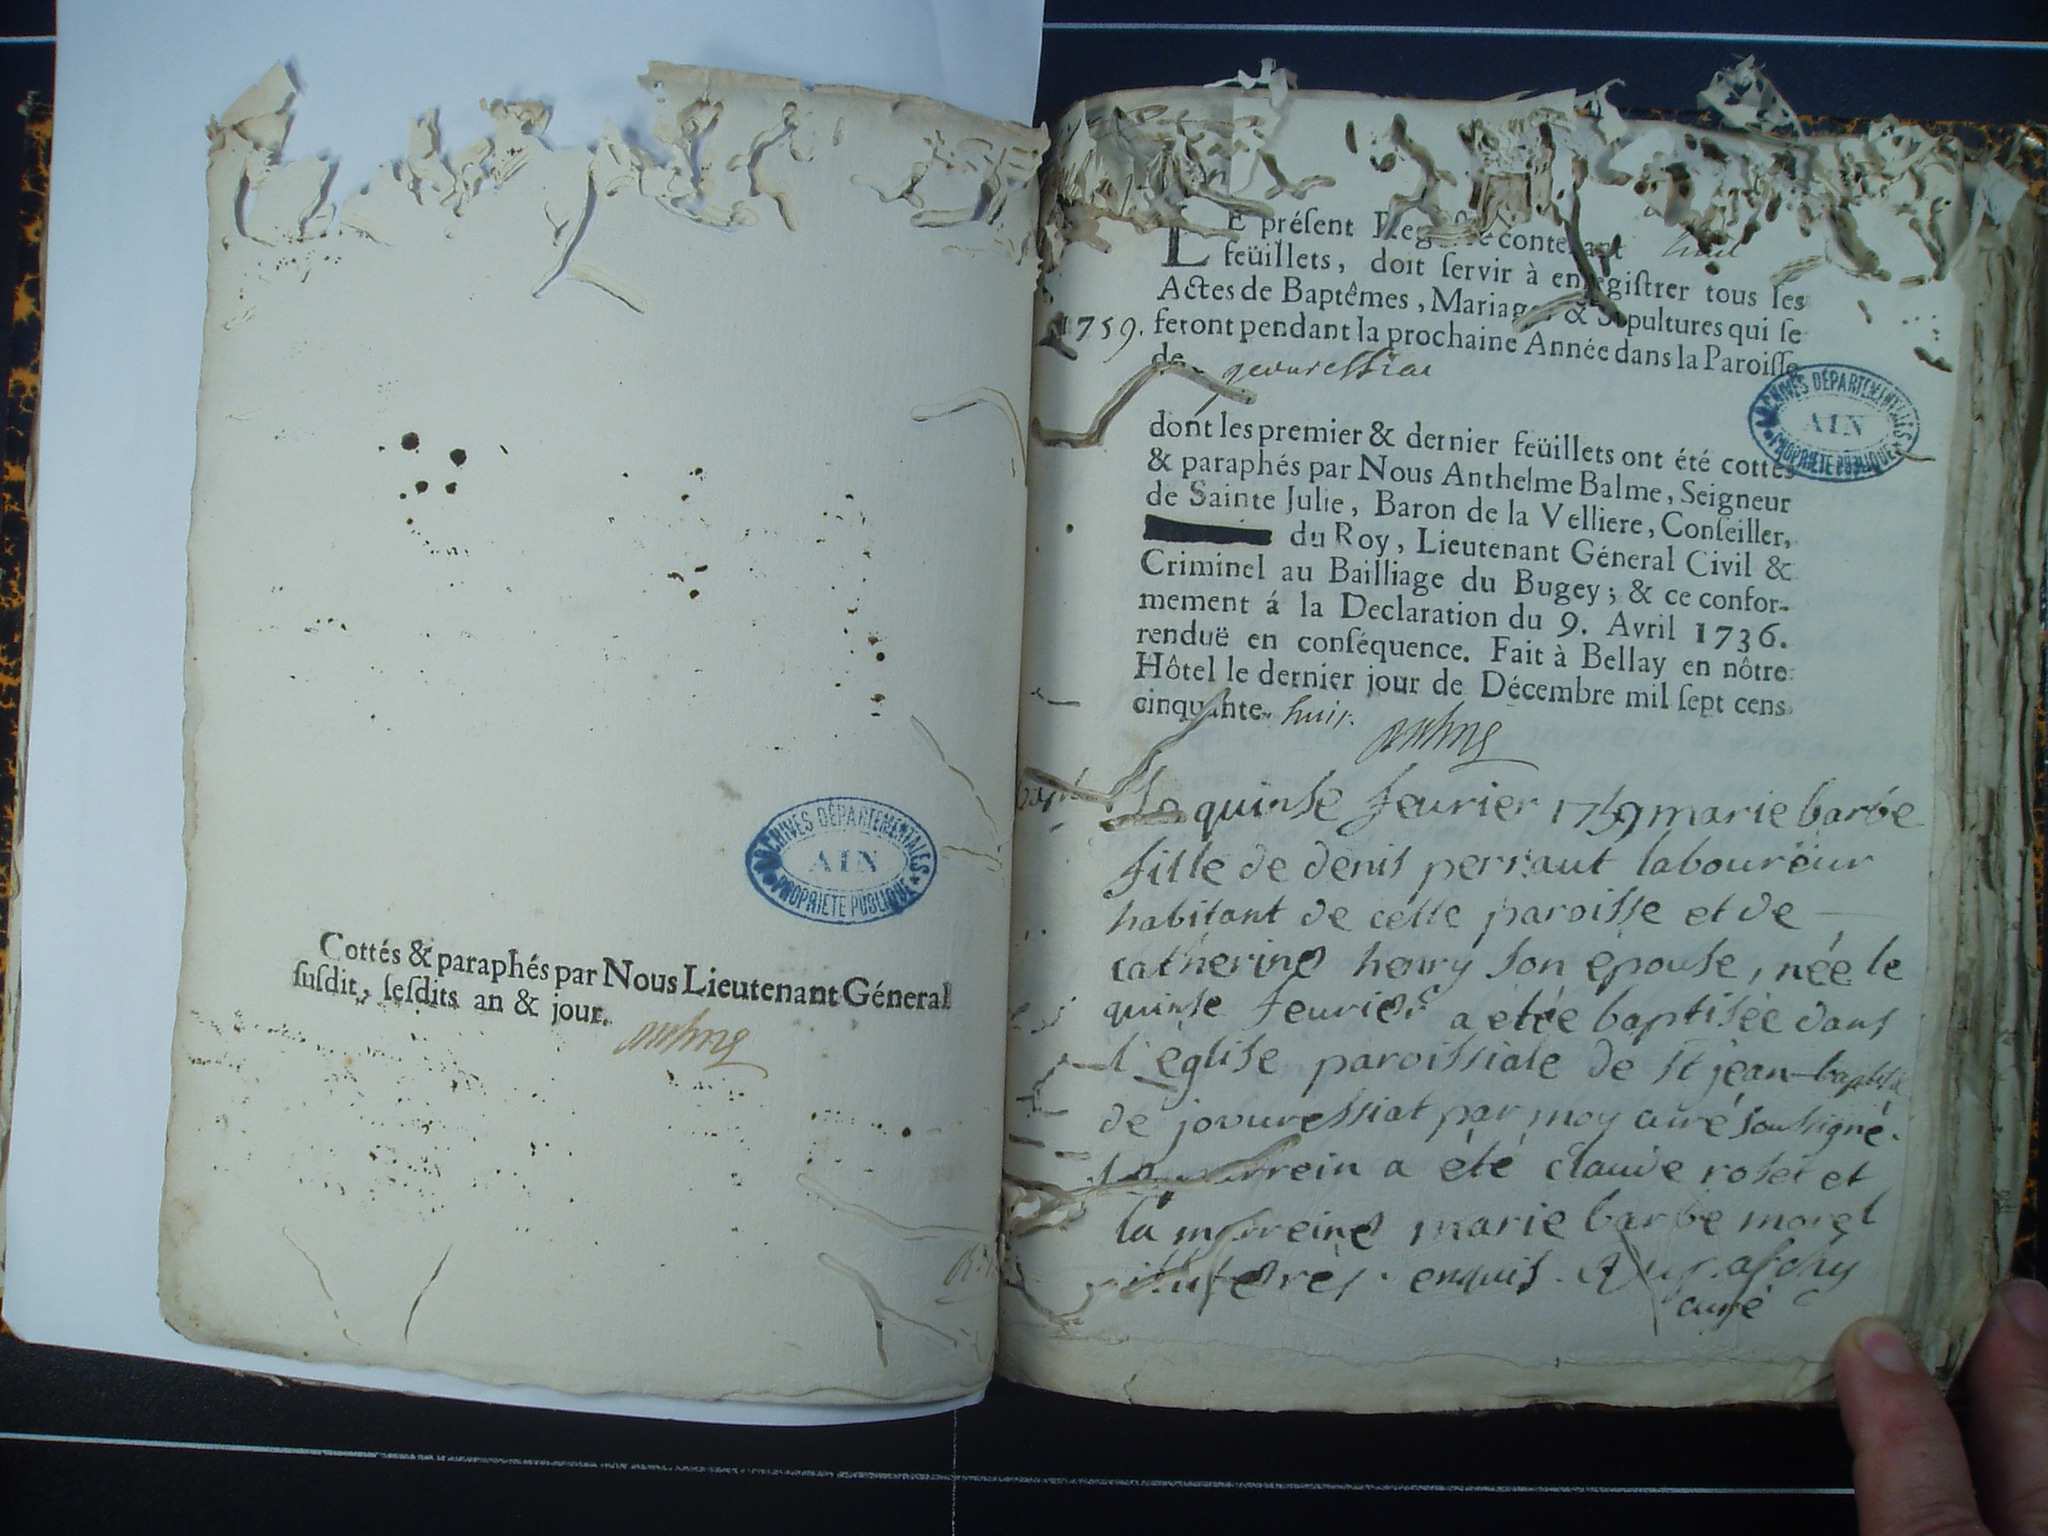 Cottés & paraphés par Nous Lieutenant Géneral
susdit, sesdits an & jour.
ARCHIVES DÉPARTEMENTALES
AIN
PROPRIÉTÉ PUBLIQUE
LE présent Registre contenant huit
feüillets, doit servir à enregistrer tous les
Actes de Baptêmes, Mariages & Sépultures qui se
1759. feront pendant la prochaine Année dans la Paroisse
de jeuuressiat
ARCHIVES DÉPARTEMENTALES
AIN
PROPRIÉTÉ PUBLIQUE
dont les premier & dernier feüillets ont été cottés
& paraphés par Nous Anthelme Balme, Seigneur
de Sainte Julie, Baron de la Velliere, Conseiller,
du Roy, Lieutenant Géneral Civil &
Criminel au Bailliage du Bugey; & ce confor-
mement á la Declaration du 9. Avril 1736.
renduë en conséquence. Fait à Bellay en nôtre
Hôtel le dernier jour de Décembre mil sept cens
cinquante huit.
Le quinse feurier 1759 marie barbe
fille de denis perraut laboureur
habitant de cette paroisse et de
catherine henry son épouse, née le
quinse feurier a étée baptisée dans
l'église paroissiale de st jean-baptiste
de jovuressiat par moy curé soussigné.
parrein a été claude roset et
la marreine marie barbe morel
illiterés enquis.
curé